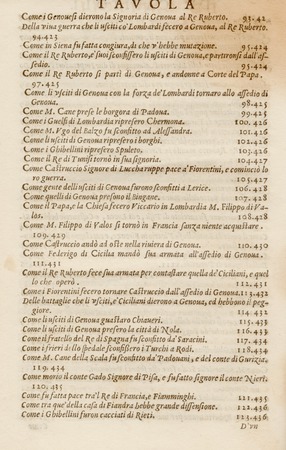 TAVOLA
Come i Genouesi dierono la Signoria di Genoua al Re Ruberto. 93.42
Della viua guerra che li vsciti co'Lombardi fecero a Genoua, al Re Ruberto.
94.423
Come in Siena fu fatta congiura, di che v'hebbe mutazione. 95.424
Come il Re Ruberto, e suoi sconfissero li vsciti di Genoua, e partironsi dall'as-
sedio. 95.424
Come il Re Ruberto si parti di Genoua, e andonne a Corte del Papa.
97.425
Come li vsciti di Genoua con la forza de'Lombardi tornaro allo assedio di
Genoua. 98.425
Come M. Cane prese le borgora di Padoua. 99.425
Come i Guelfi di Lombardia ripresero Chermona. 100.426
Come M. Vgo del Balzo fu sconfitto ad Alessandra. 101.426
Come li vsciti di Genoua ripresero i borghi. 102.426
Come i Ghibellini ripresero Spuleto. 103.426
Come il Re di Tunisi tornò in sua signoria. 104.427
Come Castruccio Signore di Lucha ruppe pace a'Fiorentini, e cominciò lo
ro guerra. 105.427
Come gente delli vsciti di Genoua furono sconfitti a Lerice. 106.428
Come quelli di Genoua presono il Singane. 107.428
Come il Papa, e la Chiesa fecero Viccario in Lombardia M. Filippo di Va-
los. 108.428
Come M. Filippo di Valos si tornò in Francia sanza niente acquistare.
109.429
Come Castruccio andò ad oste nella riuiera di Genoua. 110.430
Come Federigo di Cicilia mandò sua armata all'assedio di Genoua.
111.431
Come il Re Ruberto fece sua armata per contastare quella de'Ciciliani, e quel
lo che operò. 112.431
Come i Fiorentini fecero tornare Castruccio dall'assedio di Genoua. 113.432
Delle battaglie che li vsciti, e'Ciciliani dierono a Genoua, ed hebbono il peg-
giore. 114.433
Come li vsciti di Genoua guastaro Chiaueri. 115.433
Come li vsciti di Genoua presero la città di Nola. 116.433
Come il fratello del Re di Spagna fu sconfitto da'Saracini. 117.433
Come i frieri dello spedale sconfissero i Turchi a Rodi. 118.433
Come M. Cane della Scala fu sconfitto da'Padouani, e del conte di Gurizia,
119.434
Come morio il conte Gado Signore di Pisa, e fu fatto signore il conte Nieri.
120.435
Come fu fatta pace tra'l Re di Francia, e Fiamminghi. 121.435
Come tra que'della casa di Fiandra hebbe grande dissensione. 122.436
Come i Ghibellini furon cacciati di Rieti. 123.436
D'vn